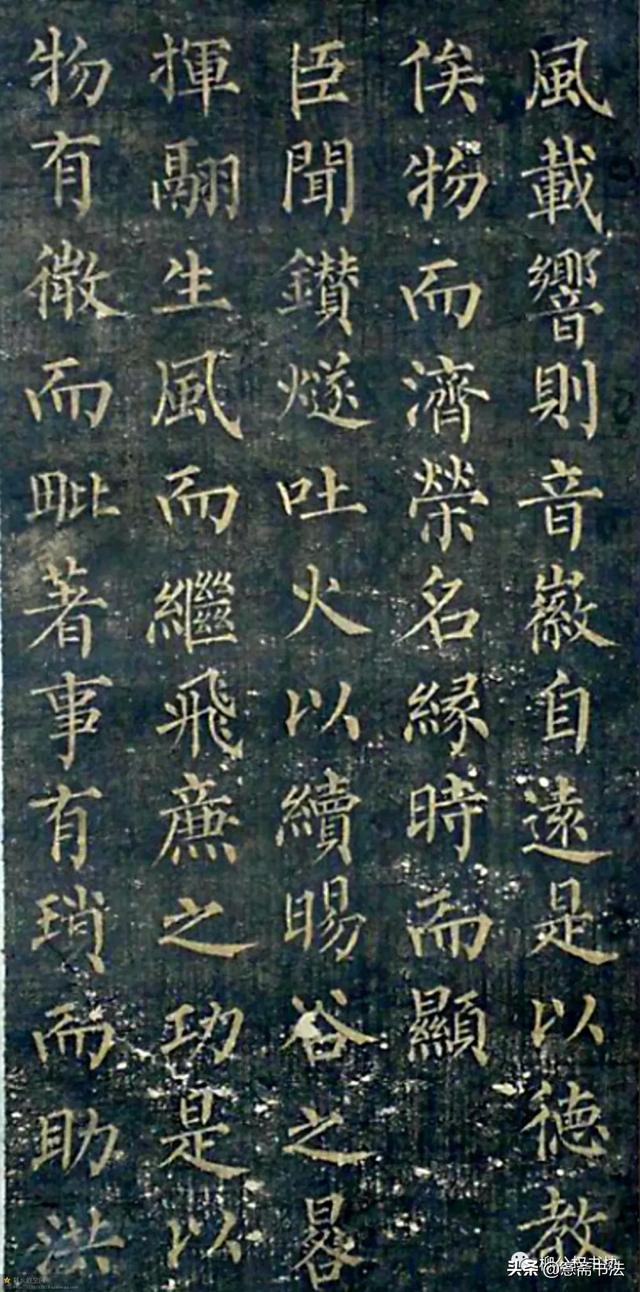 風載響則音徽自遠是以德教
俟物而濟榮名緣時而顯
臣聞鑽燧吐火以續暘谷之晷
揮翮生風而繼飛廉之功是以
物有微而毗著事有瑣而助洪
头条